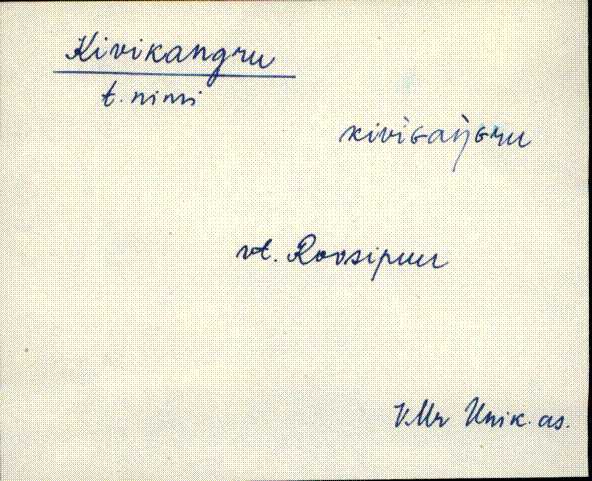 Kivikangru
t. nimi
kiviɢaŋɢru
vt. Roosipuu
VMr Unik. as.